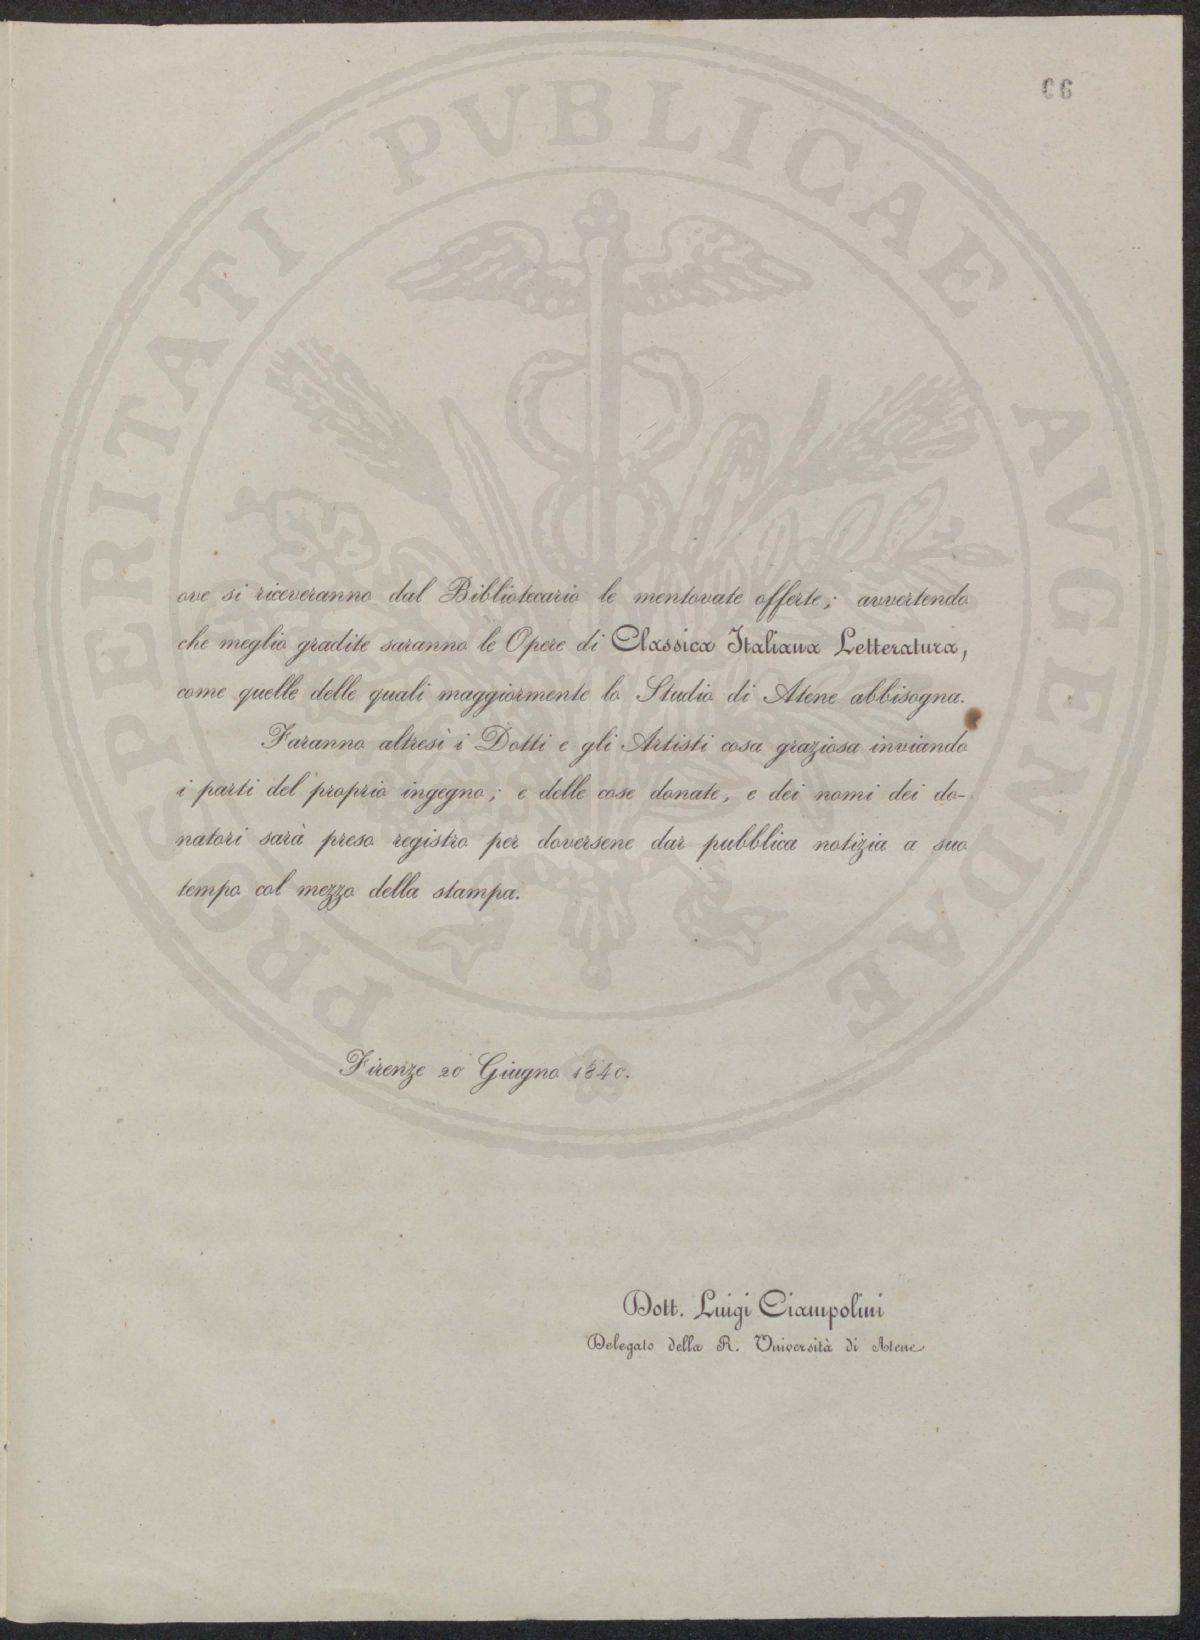 06
PROSPERITATI PUBLICAE AVGENDAE
ove si riceveranno dal Bibliotecario le mentovate offerte; avvertendo
che meglio gradite saranno le Opere di Classica Italiana Letteratura,
come quelle delle quali maggiormente lo Studio di Atene abbisogna.
Faranno altresì i Dotti e gli Artisti cosa graziosa inviando
i parti del proprio ingegno; e delle cose donate, e dei nomi dei do-
natori sarà preso registro per doversene dar pubblica notizia a suo
tempo col mezzo della stampa.
Firenze 20 Giugno 1840.
Dott. Luigi Ciampolini
Delegato della R. Università di Atene